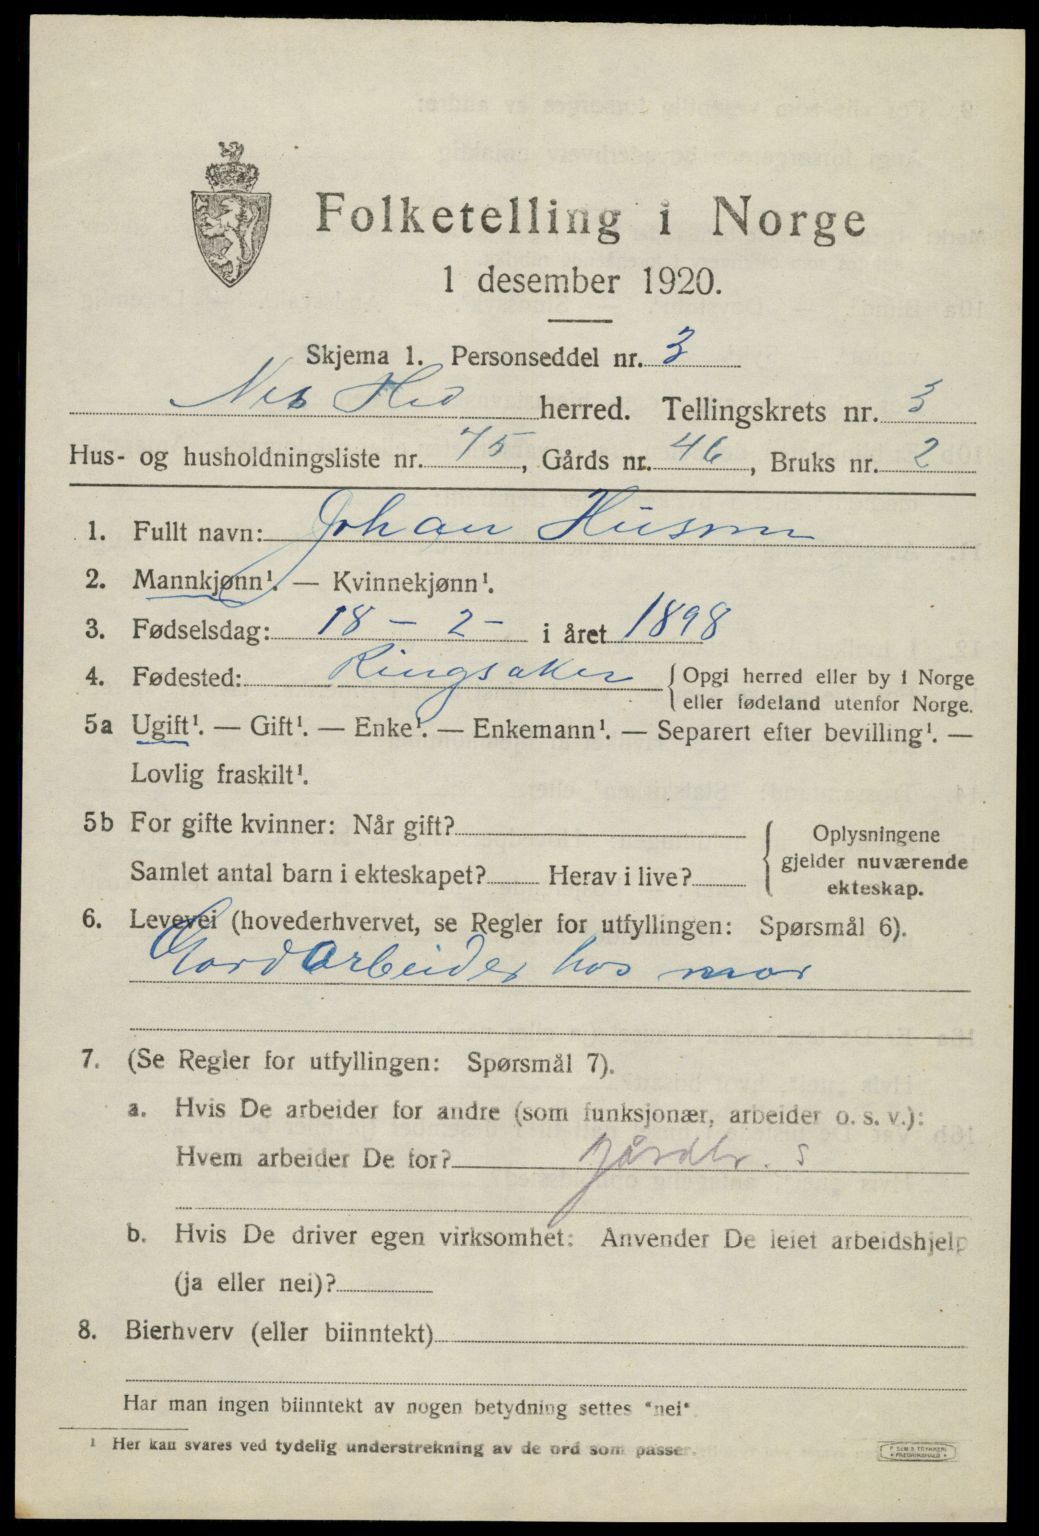 Folketelling i Norge
1 desember 1920.
Skjema 1. Personseddel nr. 3
Nes Hed herred. Tellingskrets nr. 3
Hus- og husholdningsliste nr. 75, Gårds nr. 46, Bruks nr. 2
1. Fullt navn: Johan Husom
2. Mannkjønn¹. — Kvinnekjønn¹.
3. Fødselsdag: 18 - 2 - i året 1898
4. Fødested: Ringsaker {Opgi herred eller by i Norge
eller fødeland utenfor Norge.
5a Ugift¹. — Gift¹. — Enke¹. — Enkemann¹. — Separert efter bevilling¹. —
Lovlig fraskilt¹.
5b For gifte kvinner: Når gift?
Samlet antal barn i ekteskapet? Herav i live?
Oplysningene
gjelder nuværende
ekteskap.
6. Levevei (hovederhvervet, se Regler for utfyllingen: Spørsmål 6).
Gardarbeider hos mor
7. (Se Regler for utfyllingen: Spørsmål 7).
a. Hvis De arbeider for andre (som funksjonær, arbeider o. s. v.):
Hvem arbeider De for? gårdbr. s
b. Hvis De driver egen virksomhet: Anvender De leiet arbeidshjelp
(ja eller nei)?
8. Bierhverv (eller biinntekt)
Har man ingen biinntekt av nogen betydning settes "nei".
¹ Her kan svares ved tydelig understrekning av de ord som passer.